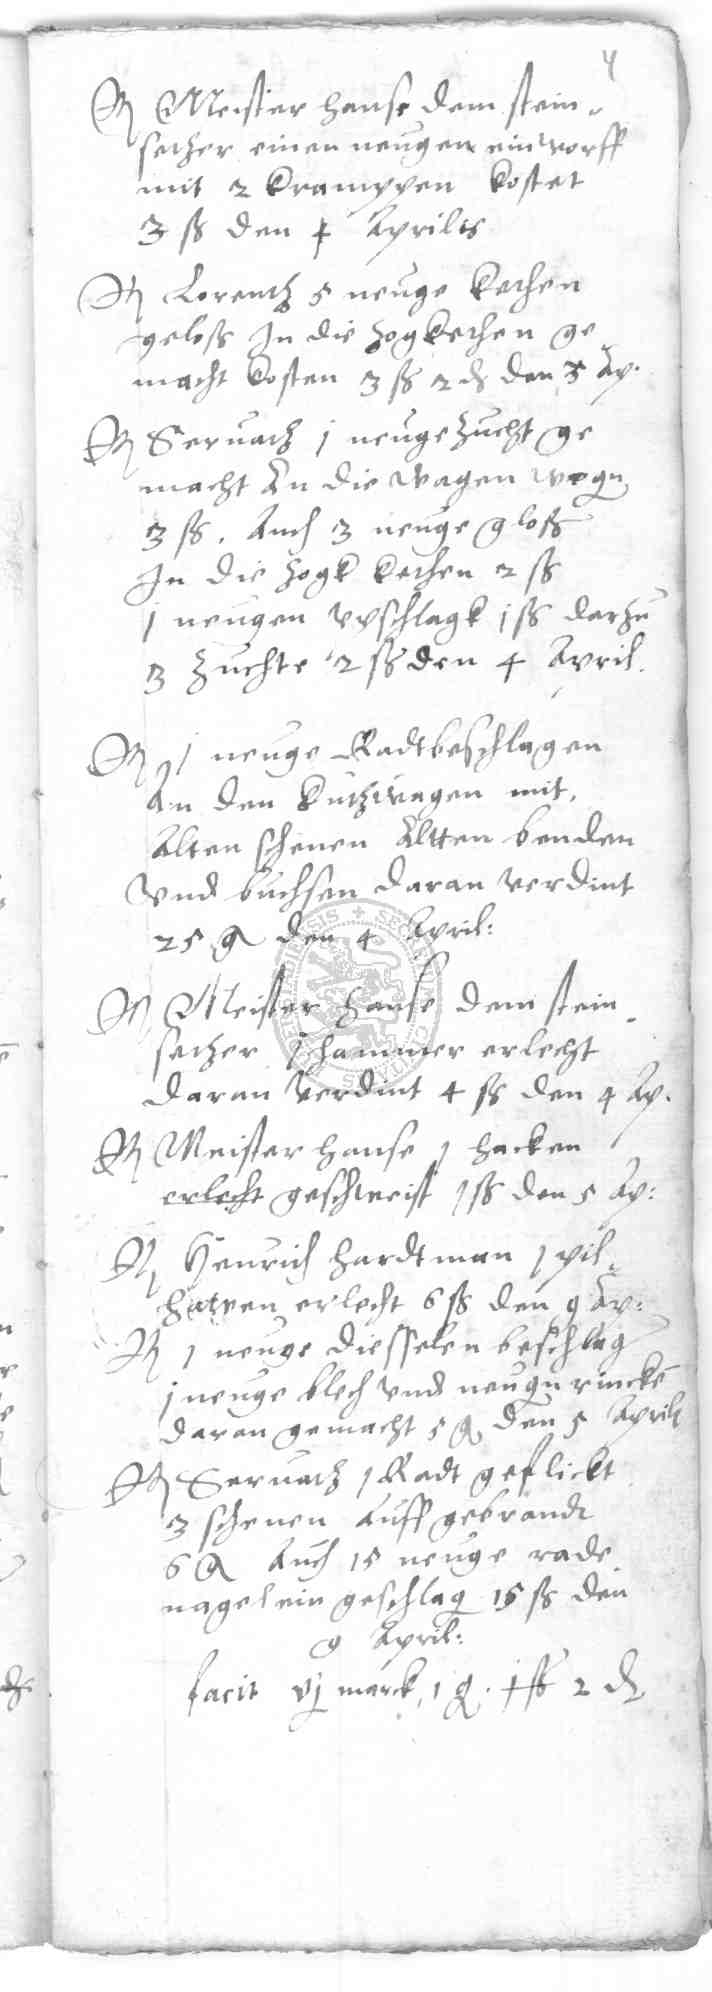 4
It Meister hanse dem stein-
setzer einen neugen einworff
mit 2 krampen kostet
3 ß den 4 Aprilis
It Lorentz 5 neuge kethen
geloss In die zogkethen ge-
macht kosten 3 ß 2 d den 3 Ap.
It Servatz 1 neuge zucht ge
macht An die wagen wogn
3 ß. Auch 3 neuge gloss
In die zogk kethen 2 ß
1 neugen upschlagk 1 ß darzu
3 zuchte 2 ß den 4 April.
It 1 neuge Radt beschlagen
An den kutzwagen mit.
Alten schenen Altten benden
vnd buchsen daran verdint
25 g den 4 April:
It Meister hanse dem stein-
setzer 1 hammer erlecht
daran verdint 4 ß den 4 Ap.
It Meister hanse 1 hacken
erlecht geschweist 1 ß den 5 Ap:
It Henrich hardtman 1 pil-
hawen erlecht 6 ß den 9 Ap:
It 1 neuge diesselen beschlag
1 neuge blech vnd neugn rincke
daran gemacht 5 g den 5 April
It Servatz 1 Radt geflickt
3 schenen Auff gebrandt
6 g Auch 15 neuge rade
nagel ein geschlag 15 ß den
9 April:
facit vj marck 1 g. 1 ß 2 d